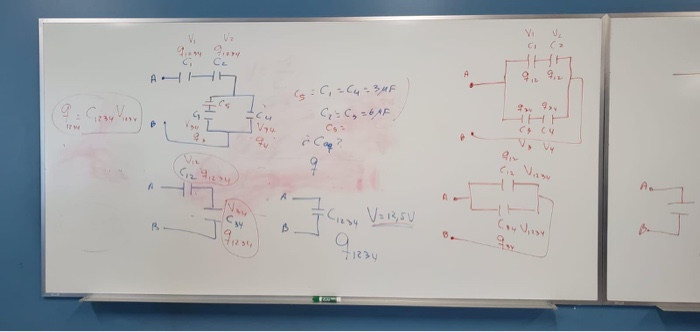 V₁ V₂
q₁₂₃₄ q₁₂₃₄
C₁ C₂
A
C₅
C₃ C₄
V₃₄ V₃₄
B
q₃ q₄
q₁₂₃₄ = C₁₂₃₄ V₁₂₃₄
C₁ = C₄ = 3μF
C₂ = C₃ = 6μF
C₅ =
¿ Ceq?
q
V₁₂
C₁₂ q₁₂₃₄
A
V₃₄
C₃₄
B
q₁₂₃₄
A
C₁₂₃₄ V=13,5V
B
q₁₂₃₄
V₁ V₂
C₁ C₂
A
q₁₂ q₁₂
q₃₄ q₃₄
B
C₃ C₄
V₃ V₄
q₁₂
C₁₂ V₁₂₃₄
A
C₃₄ V₁₂₃₄
B
q₃₄
A
B